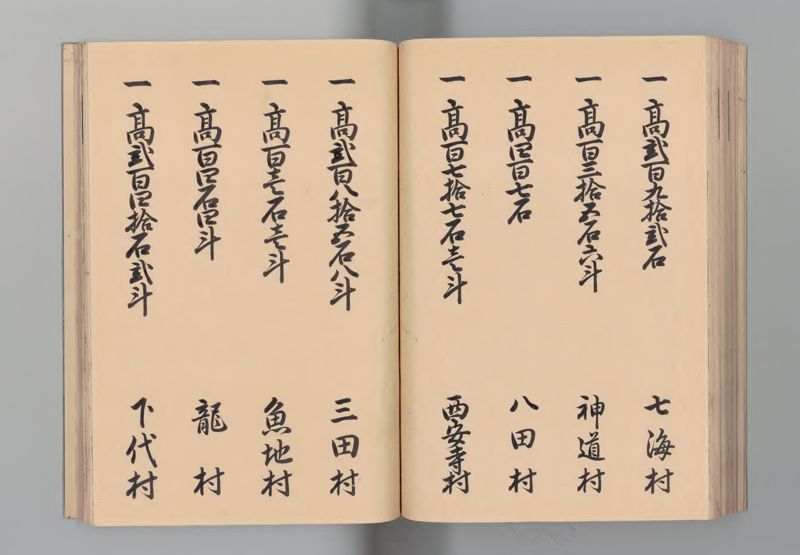 一 高弐百九拾弐石 七海村
一 高百三拾五石六斗 神道村
一 高四百七石 八田村
一 高百七拾七石壱斗 西安寺村
一 高弐百八拾五石八斗 三田村
一 高百壱石壱斗 魚地村
一 高百四石四斗 龍村
一 高弐百四拾石弐斗 下代村